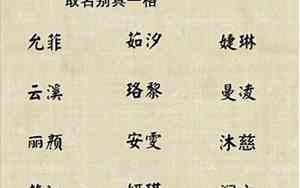 取名别具一格
允菲 茹汐 婕琳
云溪 珞黎 曼凌
丽颜 安雯 沐慈